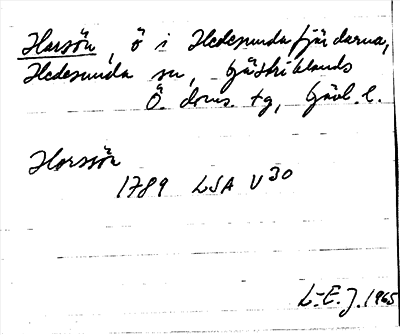 Harsön, ö i Hedesundafjärdarna,
Hedesunda sn, Gästriklands
Ö. doms. tg, Gävl. l.
Horssön
1789 LSA V 30
L-E. J. 1965